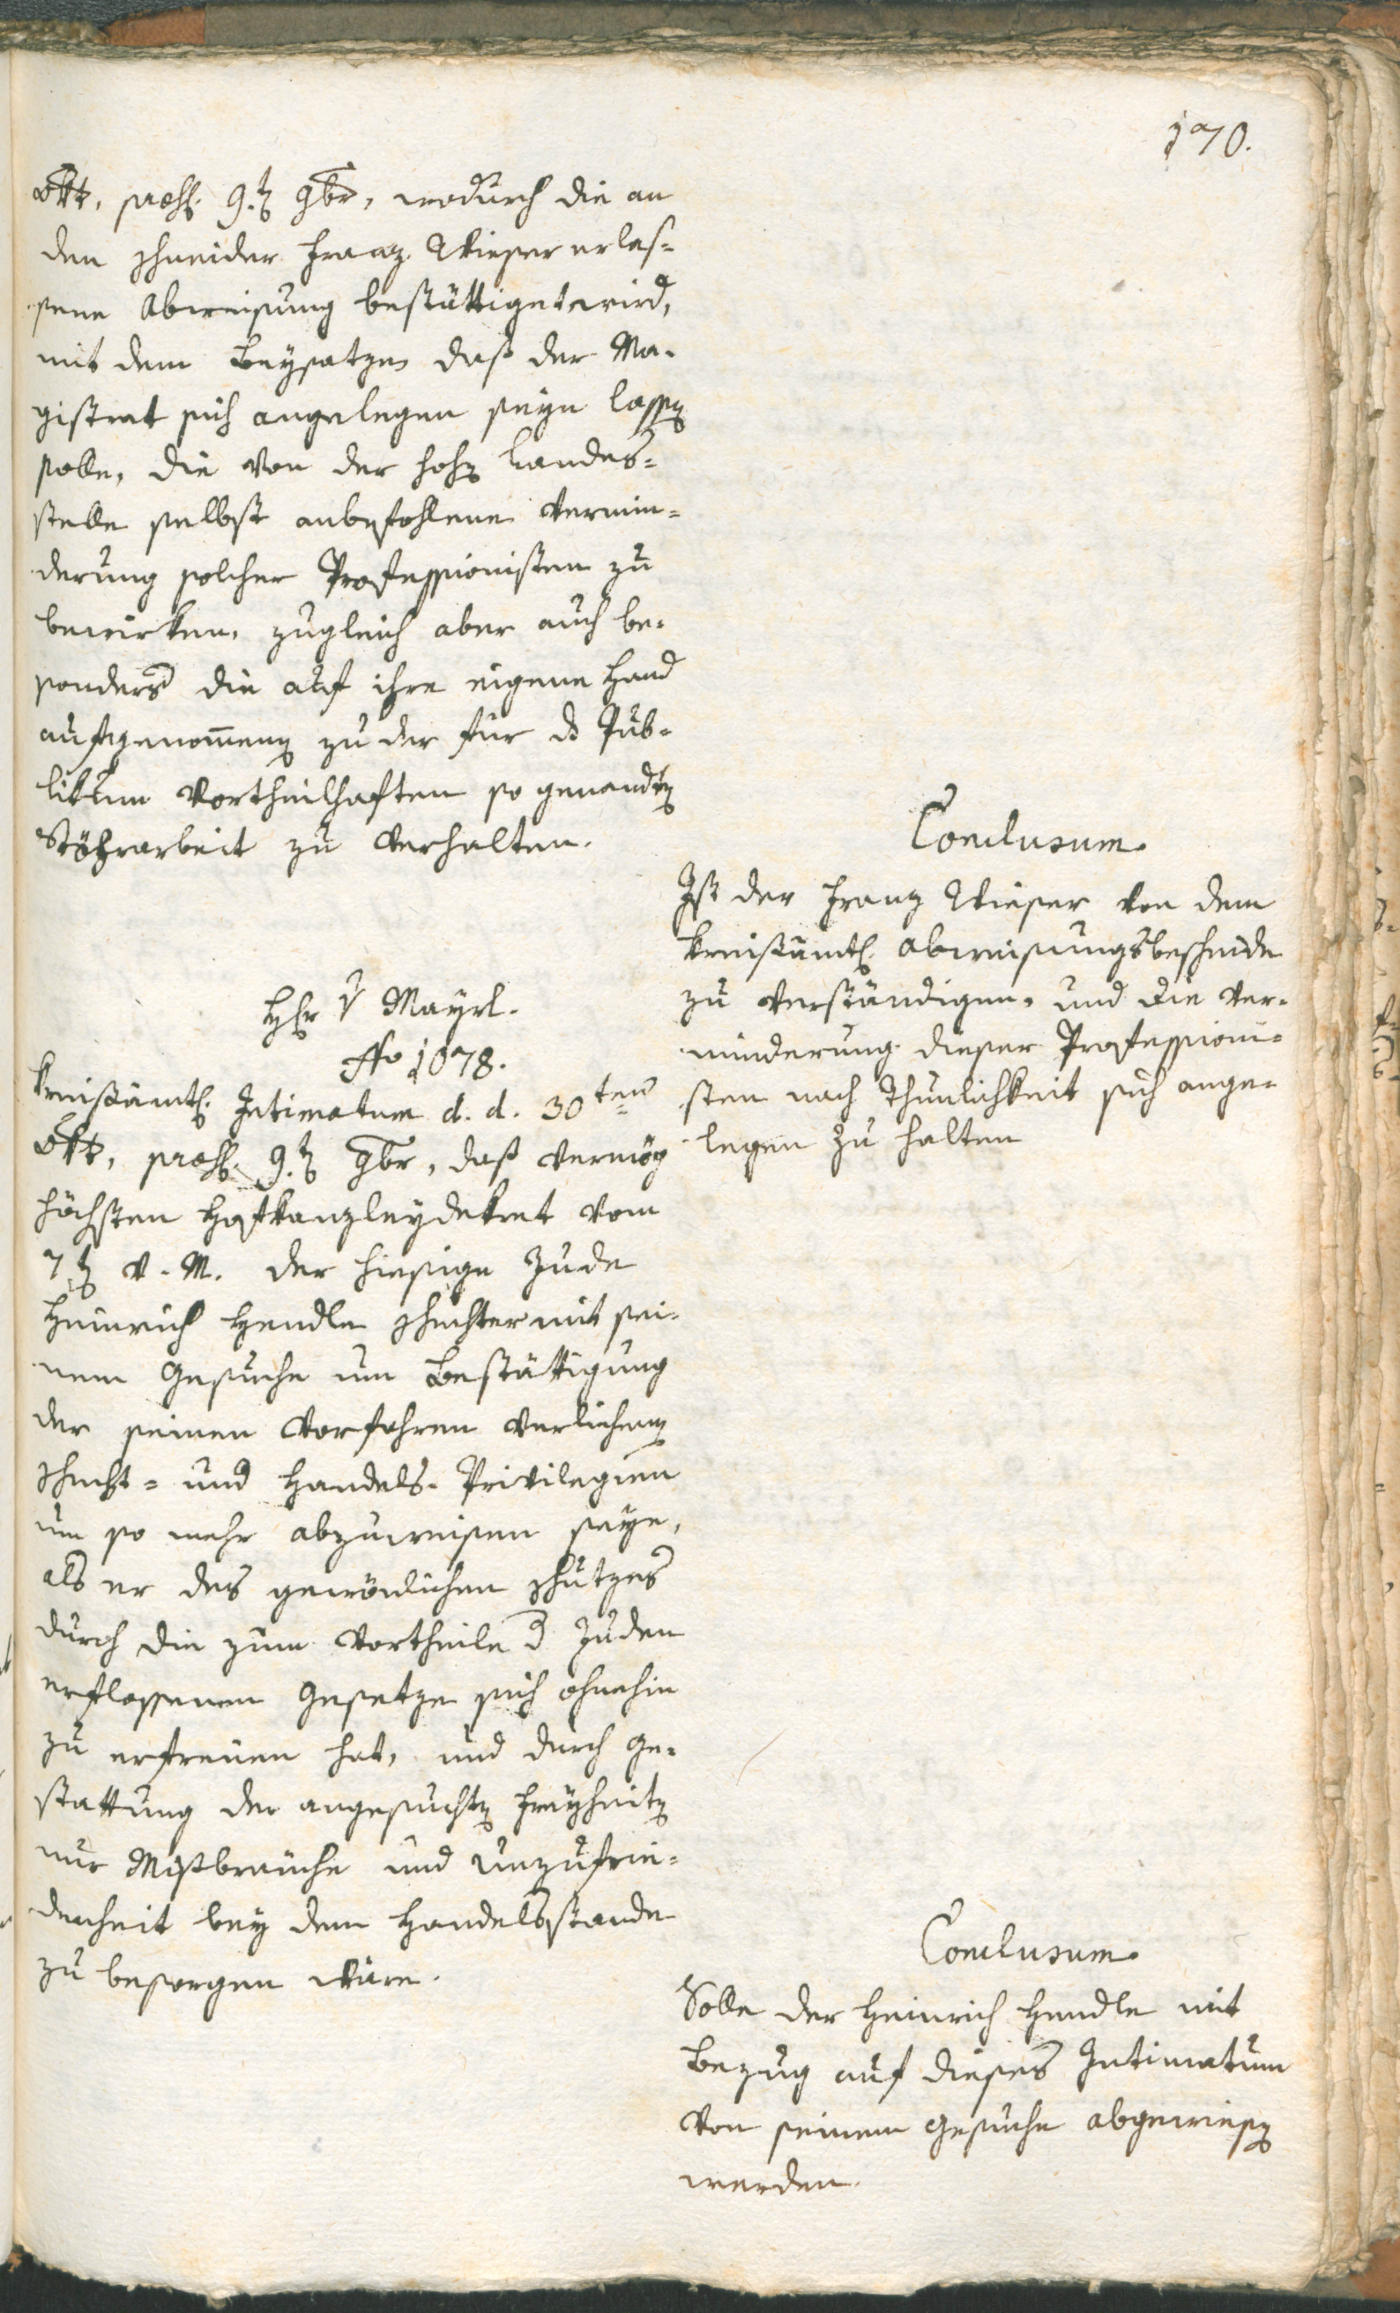 170.
8br, præs. 9.ten 9br, wodurch die an
den Schneider Franz Wieser erlas-
sene Abweisung bestättiget wird,
mit dem Beysatze, daß der Ma-
gistrat sich angelegen seyn lassen
solle, die von der hohen Landes-
stelle selbst anbefohlene Vermin-
derung solcher Professionisten zu
bewirken, zugleich aber auch be-
sonders die auf ihre eigene Hand
aufgenommenen zu der für das Pub-
likum vortheilhaften so genandten
Störarbeit zu verhalten.
Conclusum.
Ist der Franz Wieser von dem
kreisämtl. Abweisungsbescheide
zu verständigen, und die Ver-
minderung dieser Professioni-
sten nach Thunlichkeit sich ange-
legen zu halten
Hr v Mayrl.
Nro 1078.
Kreisämtl. Intimatum d. d. 30ten
8br, præs. 9.ten 9br, daß vermög
höchsten Hofkanzleydekret vom
7ten v. M. der hiesige Jude
Heinrich Hendle Schechter mit sei-
nem Gesuche um Bestättigung
der seinen Vorfahren verliehenen
Schecht- und Handels-Privilegien
um so mehr abzuweisen seye,
als er des gewönlichen Schutzes
durch die zum Vortheile d Juden
erflossenen Gesetze sich ohnehin
zu erfreuen hat, und durch Ge-
stattung der angesuchten Freyheiten
nur Mißbräuche und Unzufrie-
denheit bey dem Handelsstande
zu besorgen wäre.
Conclusum.
Solle der Heinrich Hendle mit
Bezug auf dieses Intimatum
von seinem Gesuche abgewiesen
werden.